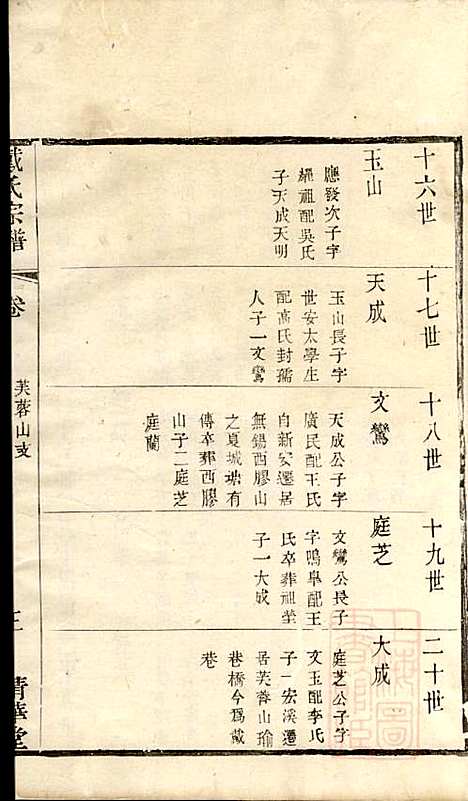 十六世
玉山
應發次子字
耀祖配吳氏
子天成天明
十七世
天成
玉山長子字
世安太學生
配高氏封孺
人子一文鸞
十八世
文鸞
天成公子字
廣民配王氏
自新安遷居
無錫西膠山
之夏城端有
傳卒葬西膠
山子二庭芝
庭蘭
十九世
庭芝
文鸞公長子
字鳴皋配王
氏卒葬祖塋
子一大成
二十世
大成
庭芝公子字
文玉配李氏
子一宏溪遷
居芙蓉山瑜
巷橋今爲戴
巷
戴氏宗譜
卷
芙蓉山支
清華堂